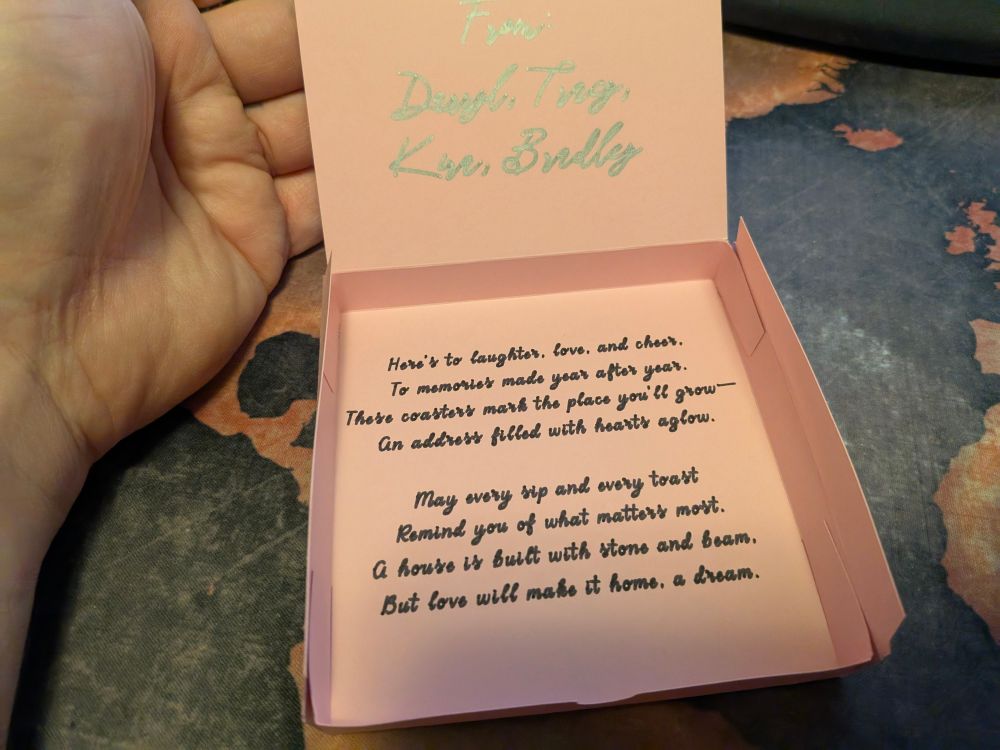 From:
Here's to laughter, love, and cheer,
To memories made year after year.
These coasters mark the place you'll grow—
An address filled with hearts aglow.
May every sip and every toast
Remind you of what matters most.
A house is built with stone and beam,
But love will make it home, a dream.